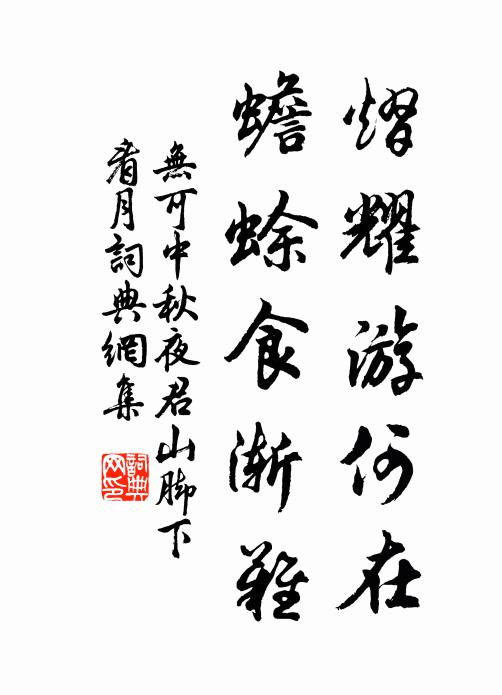 熠耀游何在
蟾蜍食漸難
無可中秋夜君山脚下
看月詞典網集
詞典
网印